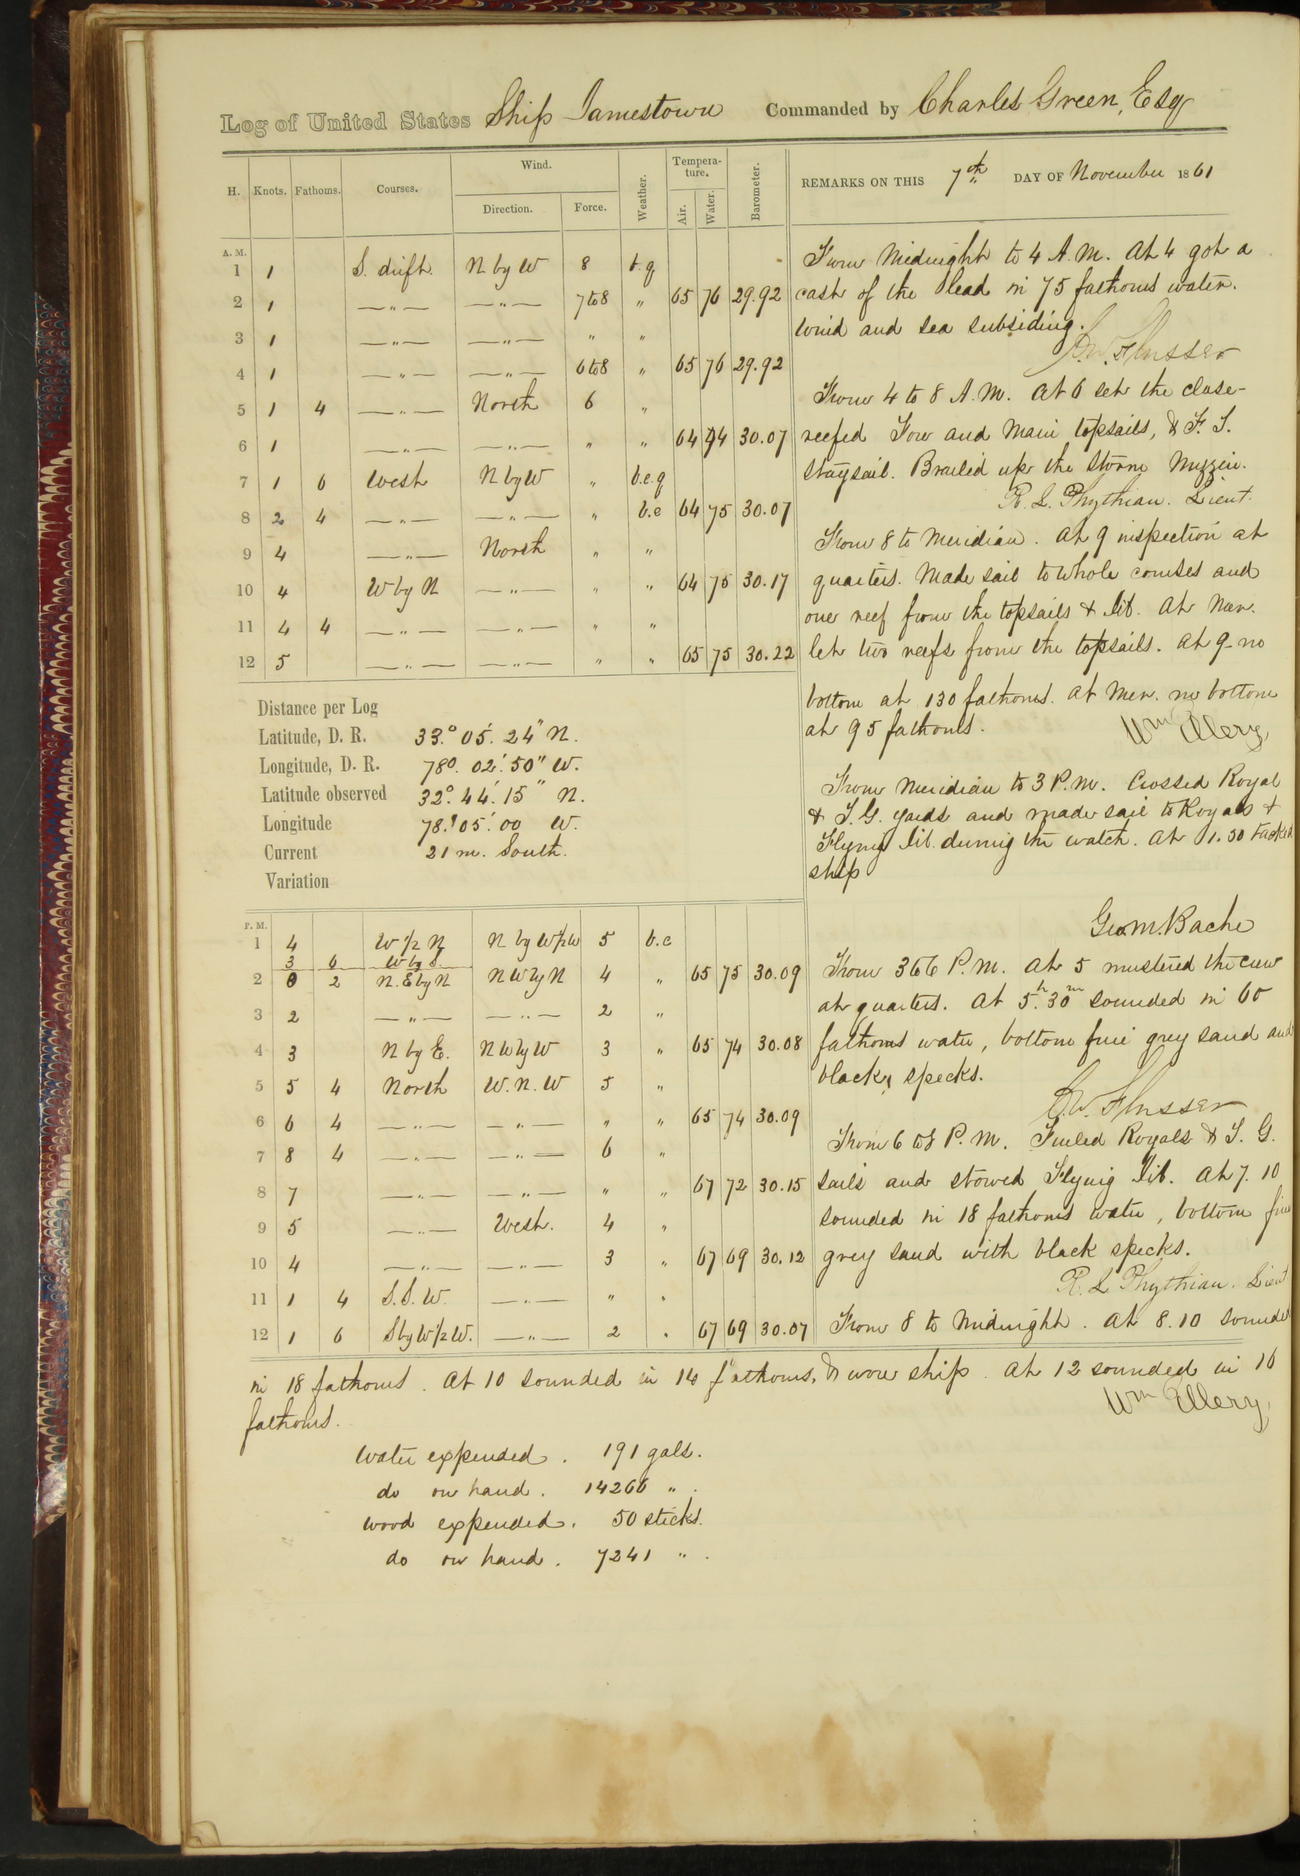 Log of United States Ship Jamestown Commanded by Charles Green, Esq
H. Knots. Fathoms. Courses. Wind. Direction. Force. Weather. Temperature. Air. Water. Barometer.
REMARKS ON THIS 7th DAY OF November 1861
A. M.
1 1 S. drift. N by W 8 b.q
2 1 —〃— —〃— 7 to 8 〃 65 76 29.92
3 1 —〃— —〃— 〃 〃
4 1 —〃— —〃— 6 to 8 〃 65 76 29.92
5 1 4 —〃— North 6 〃
6 1 —〃— —〃— 〃 〃 64 74 30.07
7 1 6 West N by W 〃 b.c.q
8 2 4 —〃— —〃— 〃 b.c 64 75 30.07
9 4 —〃— North 〃 〃
10 4 W by N —〃— 〃 〃 64 75 30.17
11 4 4 —〃— —〃— 〃 〃
12 5 —〃— —〃— 〃 〃 65 75 30.22
From Midnight to 4 A.M. At 4 got a
cast of the lead in 75 fathoms water.
Wind and sea subsiding.
C.W. Flusser
From 4 to 8 A.M. At 6 set the close-
reefed Fore and Main topsails, & F. T.
staysail. Brailed up the storm Mizzen.
R. L. Phythian. Lieut.
From 8 to Meridian. At 9 inspection at
quarters. Made sail to whole courses and
one reef from the topsails & Jib. At Mer.
let two reefs from the topsails. At 9 no
bottom at 130 fathoms. At Mer. no bottom
at 95 fathoms.
Wm Ellery
Distance per Log
Latitude, D. R. 33.° 05.′ 24″ N.
Longitude, D. R. 78°. 02.′ 50″ W.
Latitude observed 32.° 44.′ 15″ N.
Longitude 78.° 05.′ 00 W.
Current 21 m. South.
Variation
From Meridian to 3 P.M. Crossed Royal
& T.G. yards and made sail to Royals &
Flying Jib during the watch. At 1.30 tacked
ship
Geo M. Bache
P. M.
1 4 W ½ N N by W ½ W 5 b.c
3 6 W by S.
2 0 2 N. E by N N W by N 4 〃 65 75 30.09
3 2 —〃— —〃— 2 〃
4 3 N by E. N W by W 3 〃 65 74 30.08
5 5 4 North W. N. W 5 〃
6 6 4 —〃— —〃— 〃 〃 65 74 30.09
7 8 4 —〃— —〃— 6 〃
8 7 —〃— —〃— 〃 〃 67 72 30.15
9 5 —〃— West. 4 〃
10 4 —〃— —〃— 3 〃 67 69 30.12
11 1 4 S.S.W. —〃— 〃 〃
12 1 6 S by W ½ W. —〃— 2 〃 67 69 30.07
From 3 to 6 P.M. At 5 mustered the crew
at quarters. At 5.h 30m sounded in 60
fathoms water, bottom fine grey sand and
black specks.
C.W. Flusser
From 6 to 8 P.M. Furled Royals & T. G.
sails and stowed Flying Jib. At 7.10
sounded in 18 fathoms water, bottom fine
grey sand with black specks.
R. L. Phythian. Lieut
From 8 to Midnight. At 8.10 sounded
in 18 fathoms. At 10 sounded in 14 fathoms, & wore ship. At 12 sounded in 16
fathoms.
Wm Ellery
Water expended. 191 gals.
do on hand. 14266 〃.
Wood expended. 50 sticks.
do on hand. 7241 〃.